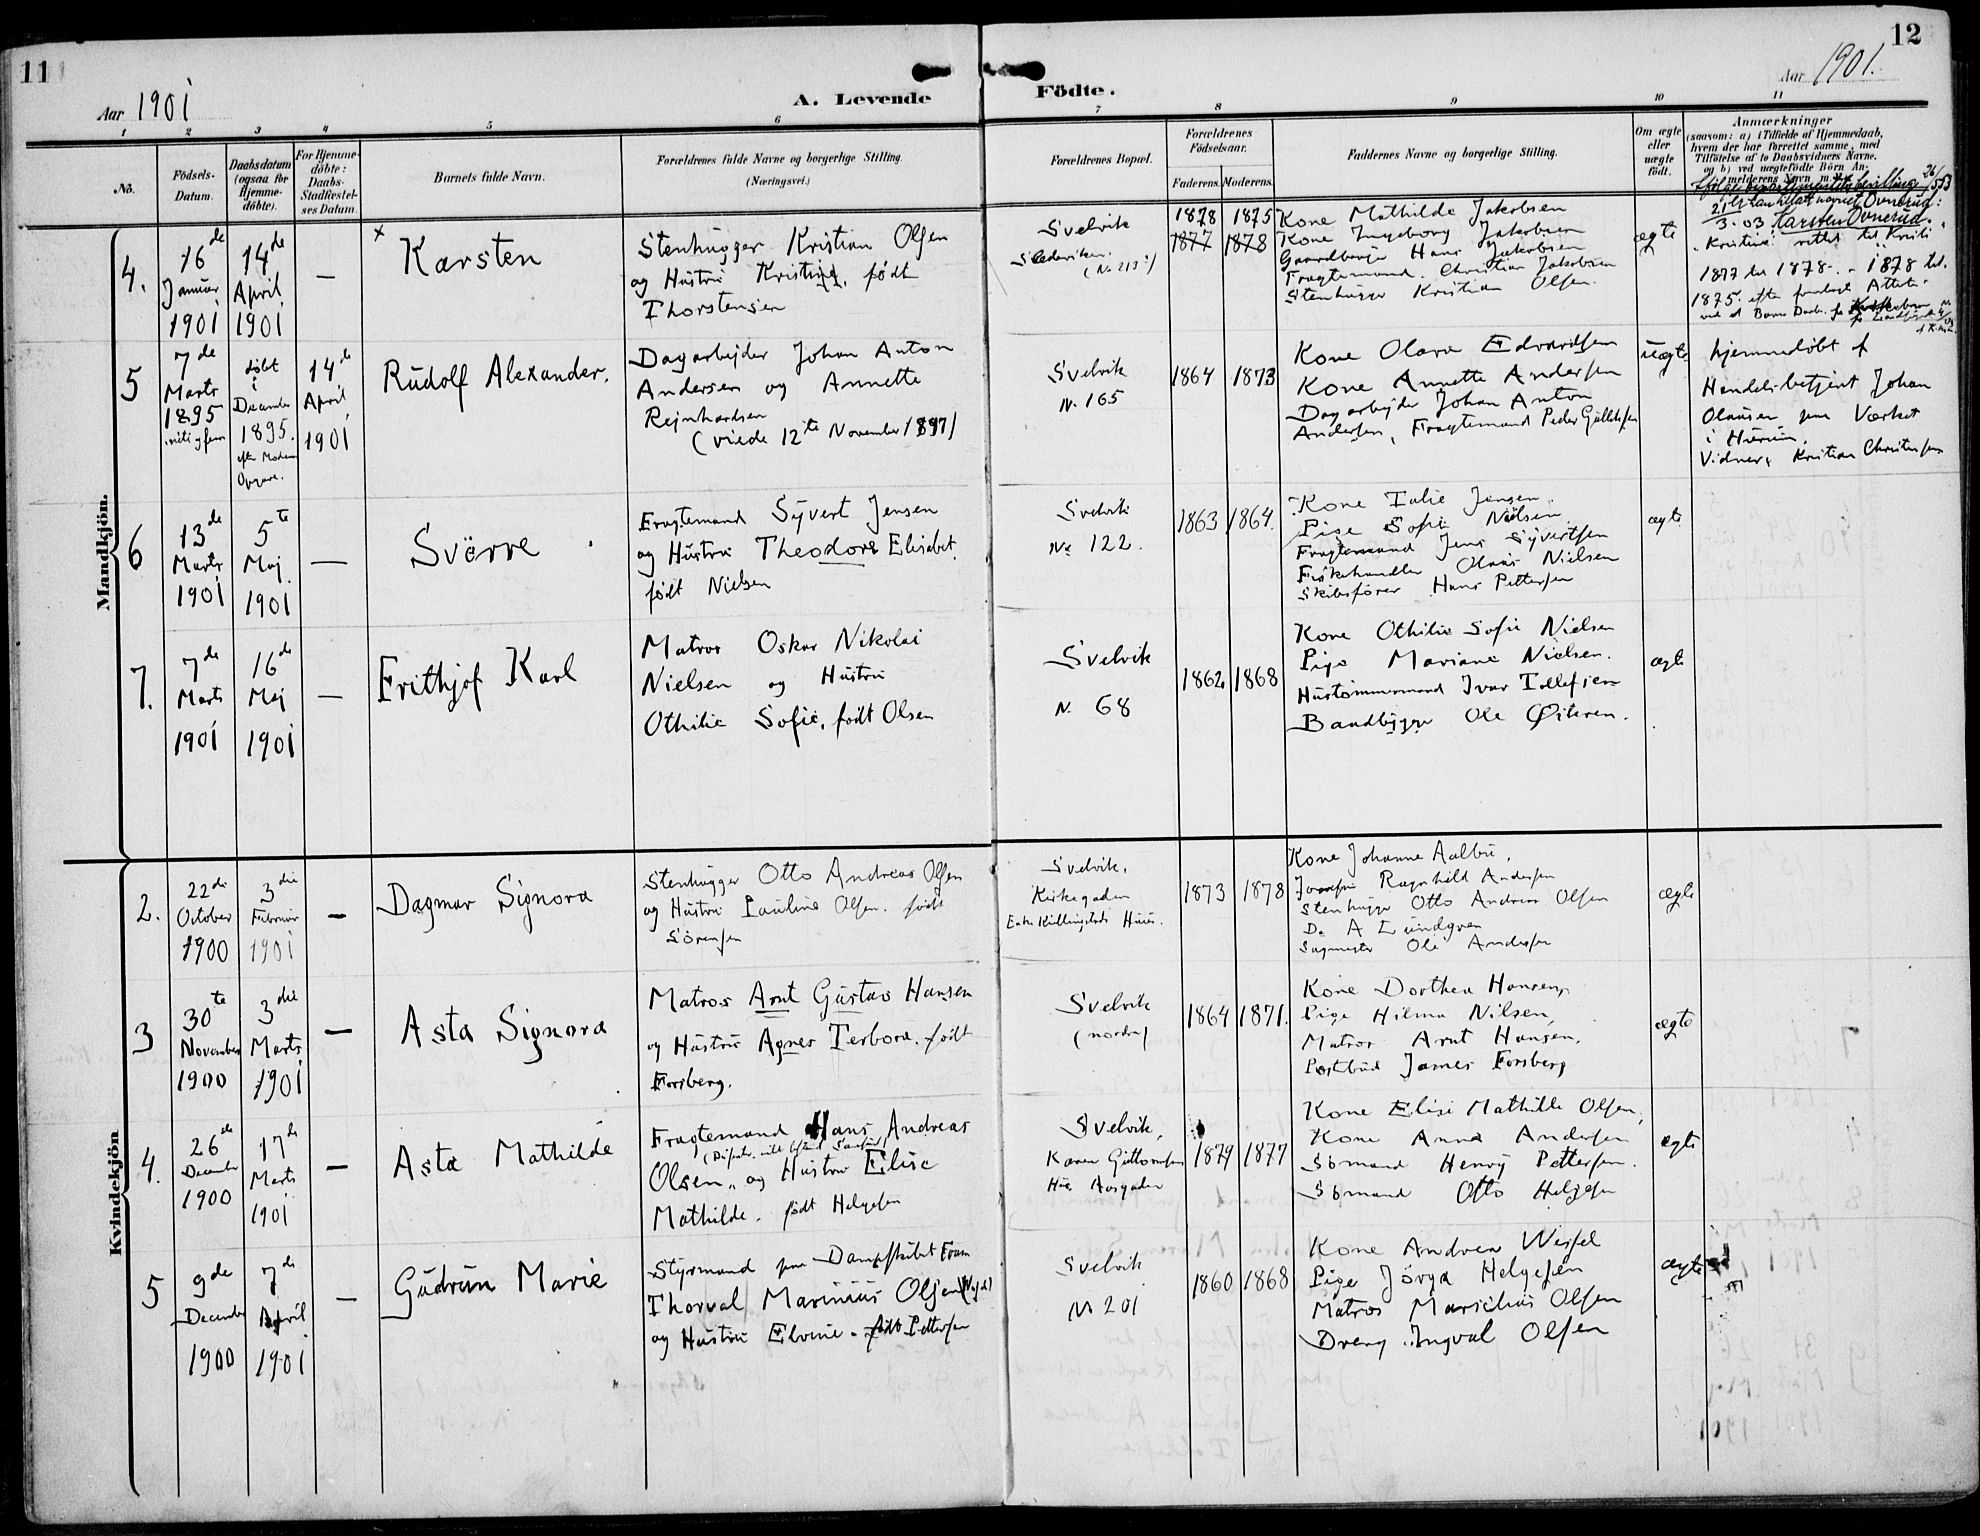 11
12
Aar 1901
A. Levende
Födte.
Aar 1901.
1 2 3 4 5 6 7 8 9 10 11
No.
Födsels-Datum.
Daabsdatum (ogsaa for Hjemme-döbte).
For Hjemme-döbte: Daabs-Stadfæstel-ses Datum.
Barnets fulde Navn.
Forældrenes fulde Navne og borgerlige Stilling.
(Næringsvei.)
Forældrenes Bopæl.
Forældrenes Födselsaar.
Faderens. Moderens.
Faddernes Navne og borgerlige Stilling.
Om ægte eller uægte födt.
Anmærkninger
(saasom: a) i Tilfælde af Hjemmedaab,
hvem der har forrettet samme, med
Tilföielse af to Daabsvidners Navne,
og b) ved uægtefödte Börn An-
melderens Navn m. v.
Mandkjön.
4.
16de Januar 1901
14de April 1901
—
× Karsten
Stenhugger Kristian Olsen
og Hustru Kristine, født
Thorstensen
Svelvik
(No 213)
1878 1875
1877 1878
Kone Mathilde Jakobsen
Kone Ingeborg Jakobsen
Gaardbruger Hans Jakobsen
Fragtemand Christian Jakobsen
Stenhugger Kristian Olsen.
ægte
26/5 53
navnet Ovnerud:
Karsten Ovnerud.
"Kristine" rettet til
1877 til 1878 - 1878 til
1875 efter Attester
5
7de Marts 1895
døbt i December 1895. efter Moderens Opgave.
14de April 1901
Rudolf Alexander.
Dagarbejder Johan Anton
Andersen og Annette
Rejnhardsen
(viede 12te November 1897)
Svelvik
N. 165
1864 1873
Kone Olava Edvardsen
Kone Annette Andersen
Dagarbejder Johan Anton
Andersen, Fragtemand Peder Gulliksen
uægte
hjemmedøbt af
Handelsbetjent Johan
Olausen paa Værket
i Hurum.
Vidner: Kristian Christensen
6
13de Marts 1901
5te Maj 1901
—
Sverre
Fragtemand Syvert Jensen
og Hustru Theodora Elisabet
født Nielsen
Svelvik
No 122.
1863 1864.
Kone Julie Jensen.
Pige Sofie Nielsen
Fragtemand Jens Syvertsen
Fiskehandler Olaus Nielsen
Skibsfører Hans Pettersen
ægte
7.
7de Marts 1901
16de Maj 1901
—
Frithjof Karl
Matros Oskar Nikolai
Nielsen og Hustru
Othilie Sofie, født Olsen
Svelvik
N. 68
1862 1868
Kone Othilie Sofie Nielsen
Pige Mariane Nielsen.
Hustømmermand Ivar Tollefsen
Baadbygger Ole
ægte
Kvindekjön
2.
22de October 1900
3die Februar 1901
—
Dagmar Signora
Stenhugger Otto Andreas Olsen
og Hustru Pauline Olsen. født
Sörensen
Svelvik.
Kirkegaden
Enke Killingstads Huus.
1873 1878
Kone Johanne Aalbu.
Ragnhild Andersen
Stenhugger Otto Andreas Olsen
Do A Lundgren
Sagmester Ole Andersen
ægte
3
30te November 1900
3die Marts 1901
—
Asta Signora
Matros Arnt Gustav Hansen
og Hustru Agnes Terbora. født
Forsberg.
Svelvik
(nordre)
1864 1871.
Kone Dorthea Hansen,
Pige Hilma Nilsen,
Matros Arnt Hansen,
Postbud James Forsberg
ægte
4.
26de December 1900
17de Marts 1901
—
Asta Mathilde
Fragtemand Hans Andreas
Olsen, og Hustru Elise
Mathilde. født Helgesen
Svelvik,
Karen Guttormsens
Hus Aasgaden
1879 1877
Kone Elise Mathilde Olsen,
Kone Anna Andersen
Sömand Henry Pettersen.
Sömand Otto Helgesen
ægte
5
9de December 1900
7de April 1901
—
Gudrun Marie
Styrmand paa Dampskibet Fram
Thorval Marinius Olsen
og Hustru Elvine. født Pettersen
Svelvik
No 201
1860 1868
Kone Andrea Wessel
Pige Jörga Helgesen
Matros Marselius Olsen
Dreng Ingval Olsen
ægte